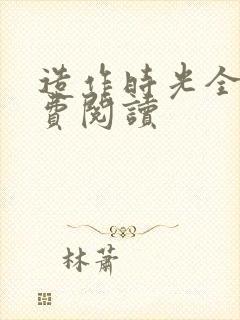 造作時光全
費閱讀
林蕭